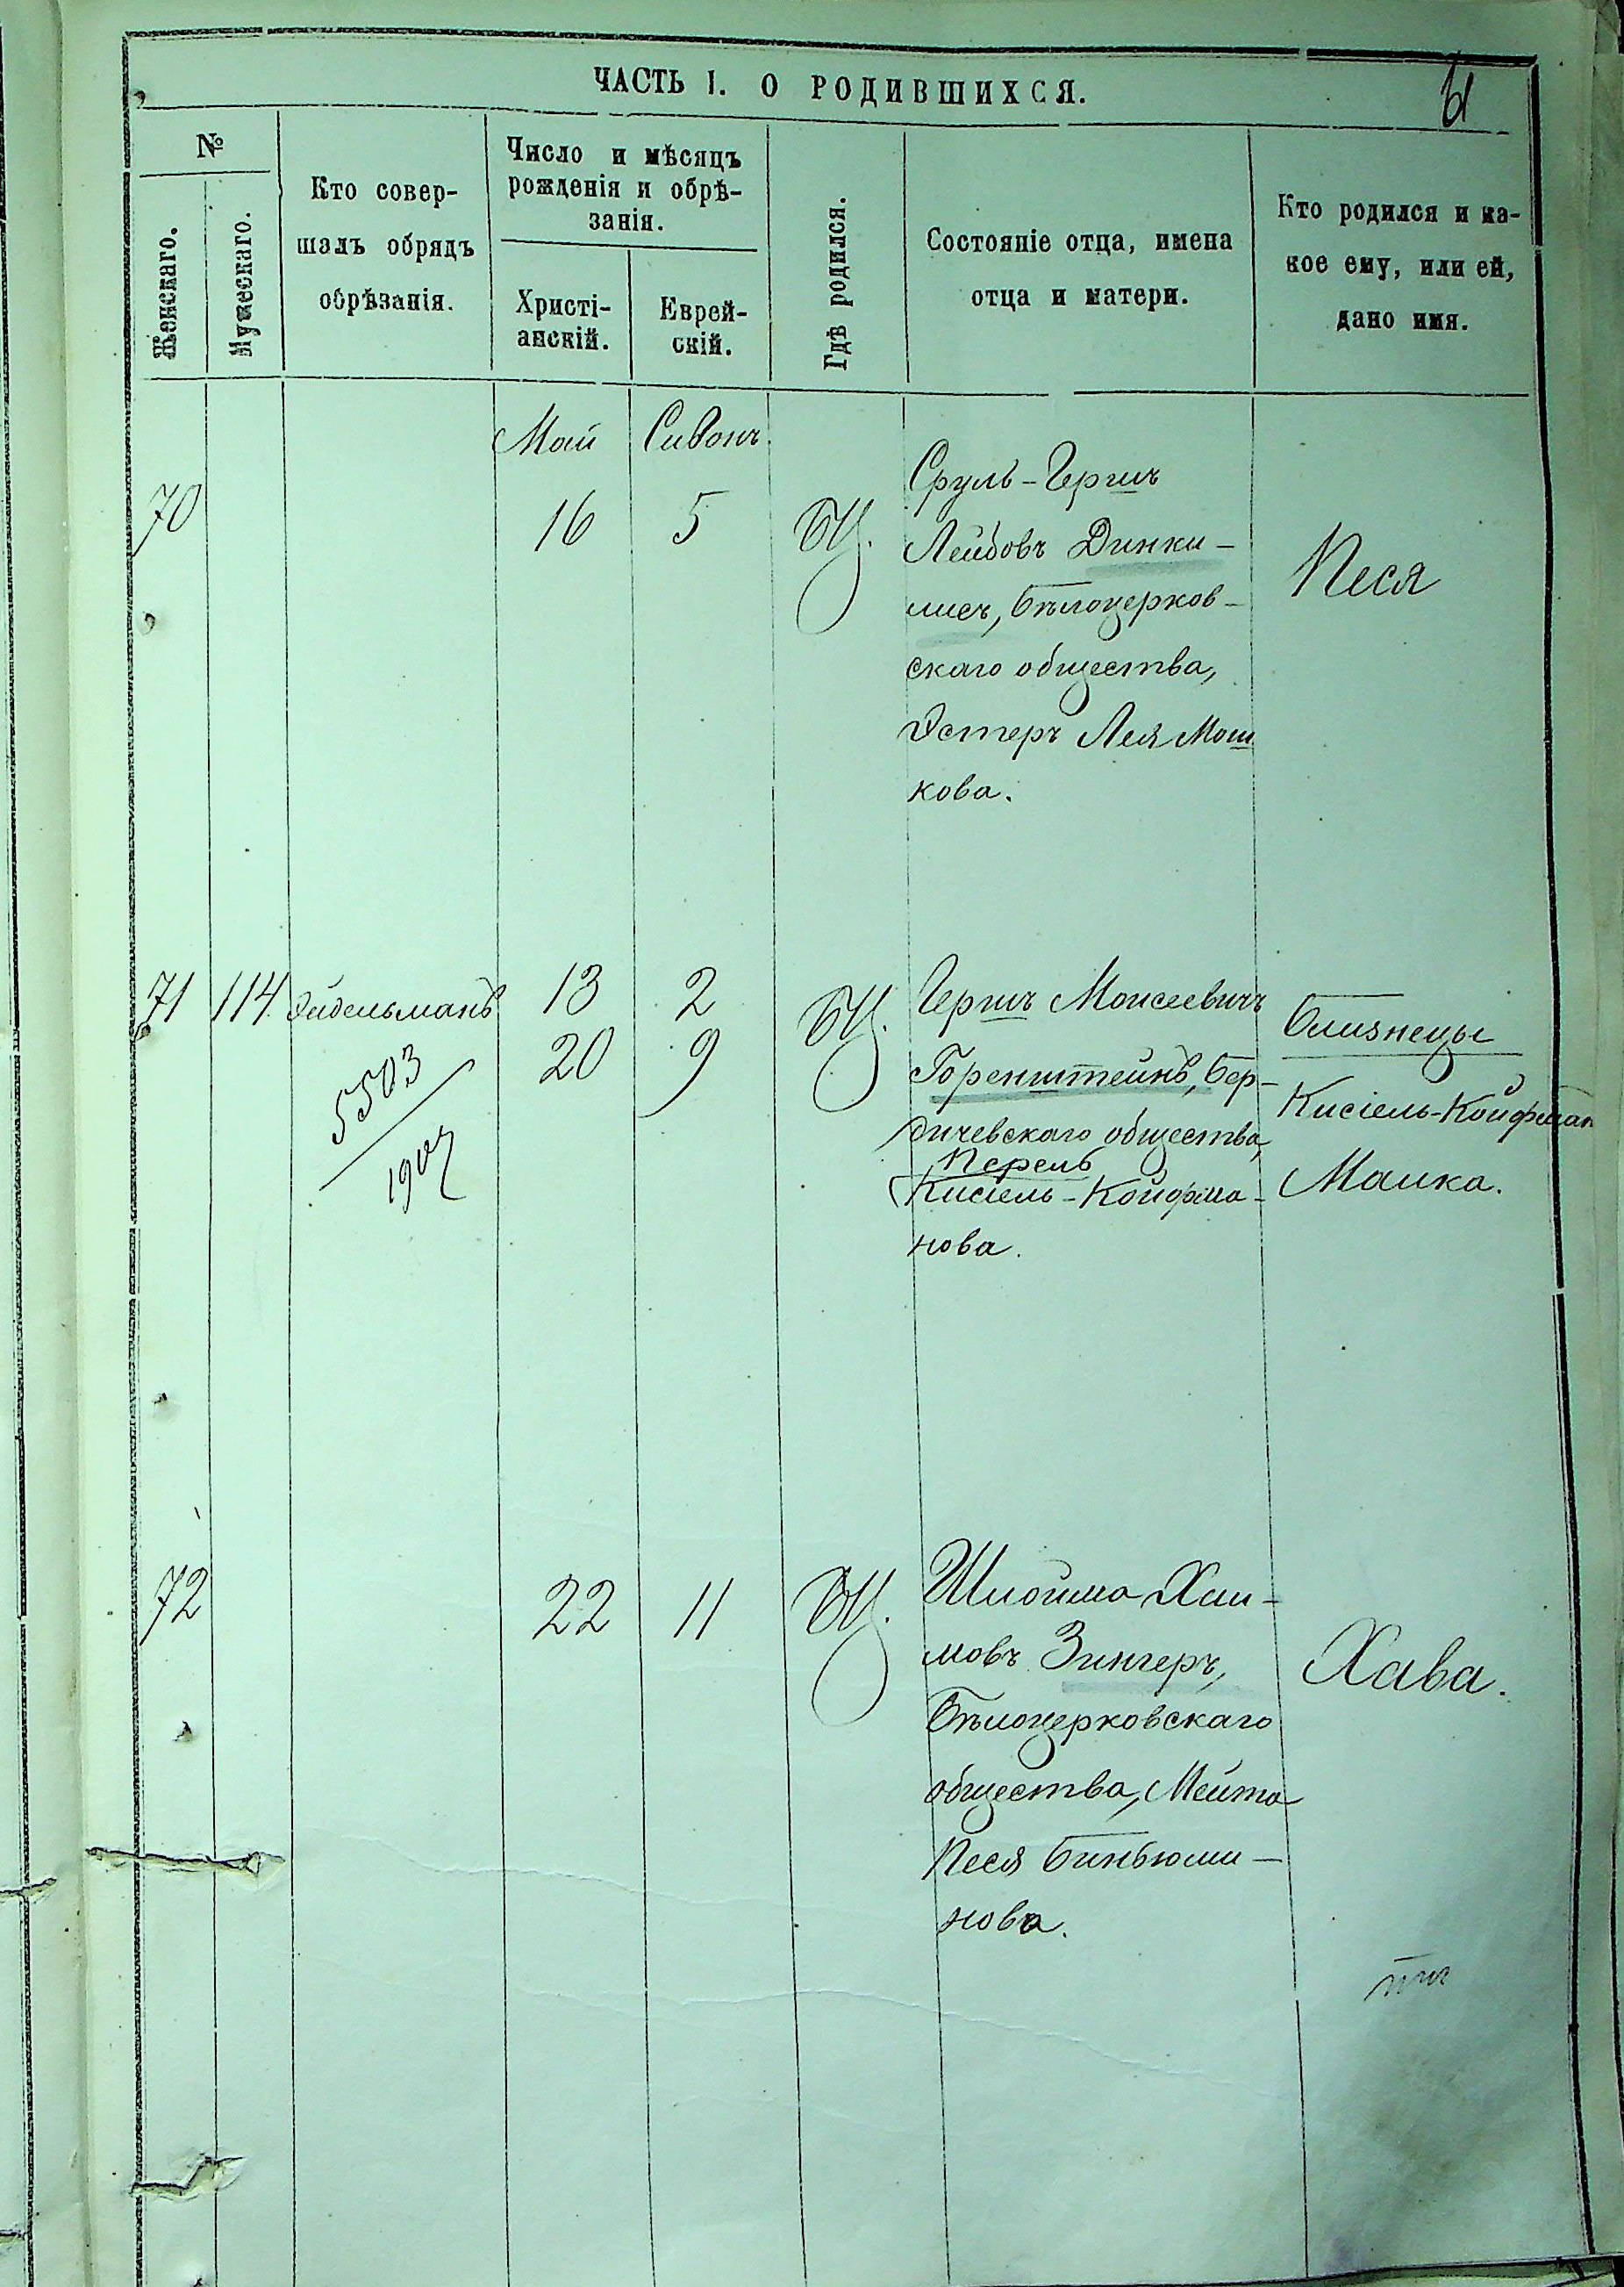 ЧАСТЬ I. О РОДИВШИХСЯ.
61
№
Женскаго.
Мужескаго.
Кто совер-
шалъ обрядъ
обрѣзанія.
Число и мѣсяцъ
рожденія и обрѣ-
занія.
Христі-
анскій.
Еврей-
скій.
Гдѣ родился.
Состояніе отца, имена
отца и матери.
Кто родился и ка-
кое ему, или ей,
дано имя.
Май Сивонъ
70 16 5 БЦ.
Сруль-Гершъ
Лейбовъ Динки-
лисъ, Бѣлоцерков-
скаго общества,
Эстеръ Лея Мош
кова.
Песя
71 114 Эйдельманъ 13 2 БЦ.
20 9
5503
190
Гершъ Моисеевичъ
Горенштейнъ, Бер-
дичевскаго общества,
Перель
Кисіель-Койфма-
нова.
Близнецы
Кисіель-Койфман
Малка.
72 22 11 БЦ.
Шлойма Хаи-
мовъ Зингеръ,
Бѣлоцерковскаго
общества, Мейта
Песя Биньюми-
нова.
Хава.